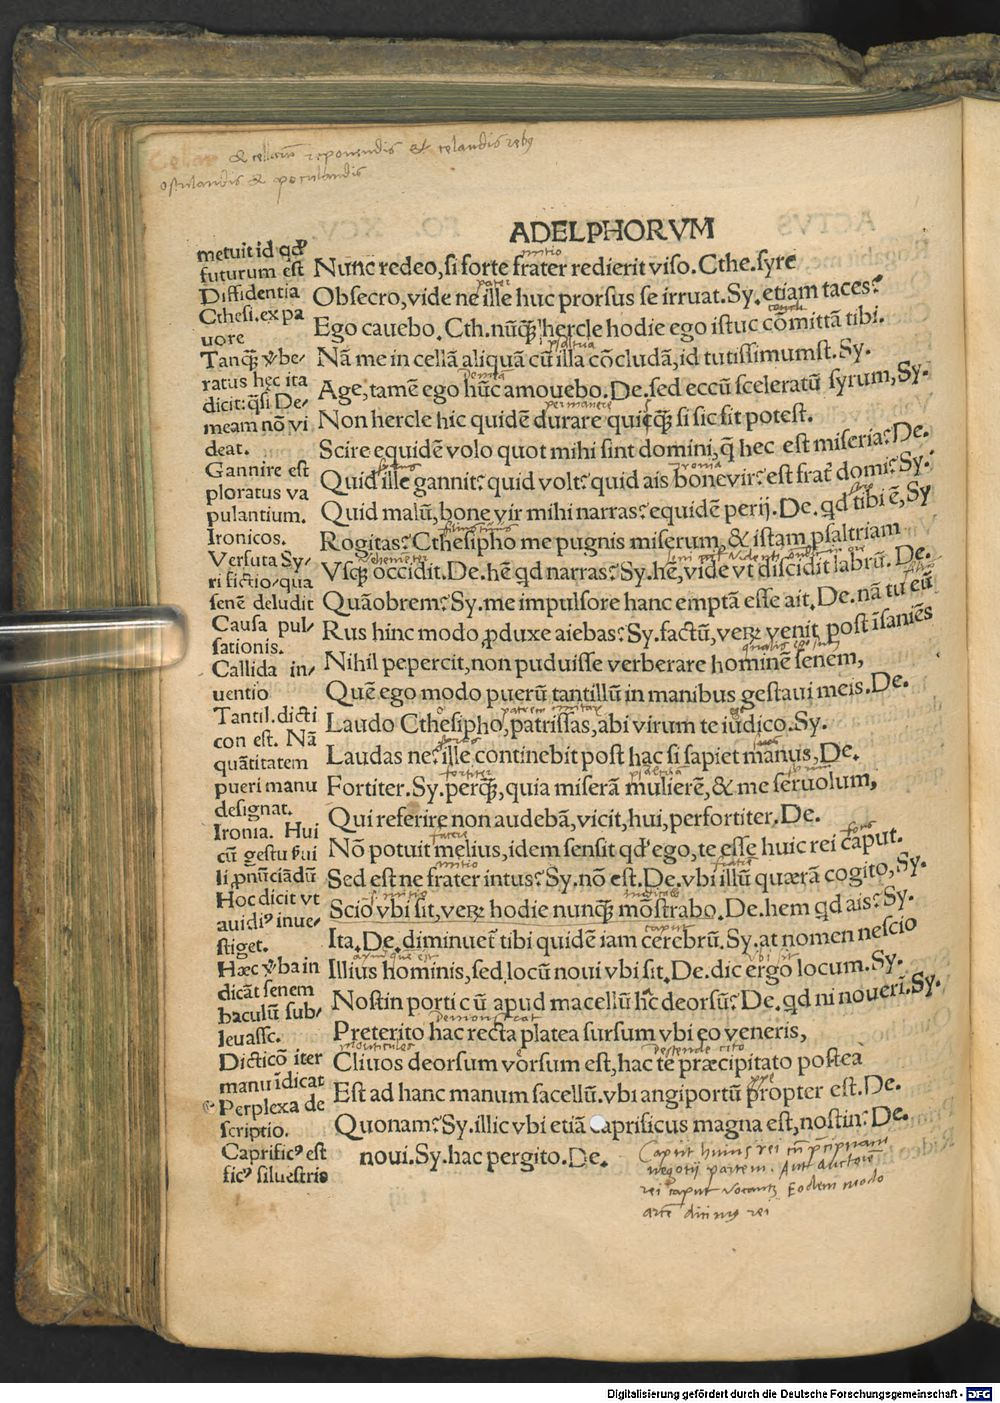 Celar & cellariũ reponendis et celandis rebꝰ
osculandis & poculandis
ADELPHORVM
metuit id qđ
futurum est
Diffidentia
Cthesi. ex pa
uore
Tanꝗ̃ ꝟbe-
ratus hęc ita
dicit: q̃si De/
meam nõ vi
deat.
Gannire est
ploratus va
pulantium.
Ironicos.
Versuta Sy/
ri fictio/qua
senẽ deludit
Causa pul/
sationis.
Callida in/
uentio
Tantil. dicti
con est. Nã
quãtitatem
pueri manu
designat.
Ironia. Hui
cũ gestu ẜui
li ꝓnũciãdũ
Hoc dicit vt
auidiꝰ inue/
stiget.
Hæc ꝟba in
dicãt senem
baculũ sub/
leuasse.
Dicticõ iter
manu ĩdicat
Perplexa de
scriptio.
Caprificꝰ est
ficꝰ siluestris
mitio
Nunc redeo, si forte frater redierit viso. Cthe. syre
pater
Obsecro, vide ne ille huc prorsus se irruat. Sy. etiam taces?
Ego cauebo. Cth. nũꝗ̃ hercle hodie ego istuc cõmittã tibi.
psaltria
Nã me in cellã aliquã cũ illa cõcludã, id tutissimumst. Sy.
demea
Age, tamẽ ego hũc amouebo. De. sed eccũ sceleratũ syrum, Sy.
permanere
Non hercle hic quidẽ durare quiꝗ̃ si sic fit potest.
Scire equidẽ volo quot mihi sint domini, q̃ hec est miseria? De.
ironia
Quid ille gannit? quid volt? quid ais bone vir? est frat̃ domi? Sy.
Quid malũ, bone vir mihi narras? equidẽ perij. De. qd tibi ẽ, Sy
Rogitas? Cthesipho me pugnis miserum, & istam psaltriam
Vsꝗ occidit. De. hẽ qd narras? Sy. hẽ, vide vt discidit labrũ. De.
Quãobrem? Sy. me impulsore hanc emptã esse ait. De. nã tu eũ
Rus hinc modo ꝓduxe aiebas? Sy. factũ, veꝝ venit post ĩsaniẽs
Nihil pepercit, non puduisse verberare hominẽ senem,
Quẽ ego modo puerũ tantillũ in manibus gestaui meis. De.
ô patrem imitaris
Laudo Cthesipho, patrissas, abi virum te iudico. Sy.
Laudas ne? ille continebit post hac si sapiet manus, De.
fortiter psaltria
Fortiter. Sy. perꝗ̃, quia miserã mulierẽ, & me seruolum,
Qui referire non audebã, vicit, hui, perfortiter. De.
facere
Nõ potuit melius, idem sensit qđ ego, te esse huic rei caput.
mitio
Sed est ne frater intus? Sy. nõ est. De. vbi illũ quærã cogito, Sy.
Scio vbi sit, veꝝ hodie nunꝗ̃ mõstrabo. De. hem qd ais? Sy.
caput
Ita. De. diminuet̃ tibi quidẽ iam cerebrũ. Sy. at nomen nescio
vbi sit
Illius hominis, sed locũ noui vbi sit. De. dic ergo locum. Sy.
Nostin porticũ apud macellũ hc̃ deorsũ? De. qd ni nouerĩ. Sy.
Preterito hac recta platea sursum vbi eo veneris,
monticulꝰ descende cito
Cliuos deorsum vorsum est, hac te præcipitato postea
ꝓpe
Est ad hanc manum sacellũ. vbi angiportũ propter est. De.
Quonam? Sy. illic vbi etiã caprificus magna est, nostin? De.
noui. Sy. hac pergito. De.
Caput huius rei cũ p̃cipuam
negotij partem. Aut auctorẽ
rei caput vocant Eodem modo
dicimus rei
Digitalisierung gefördert durch die Deutsche Forschungsgemeinschaft - DFG